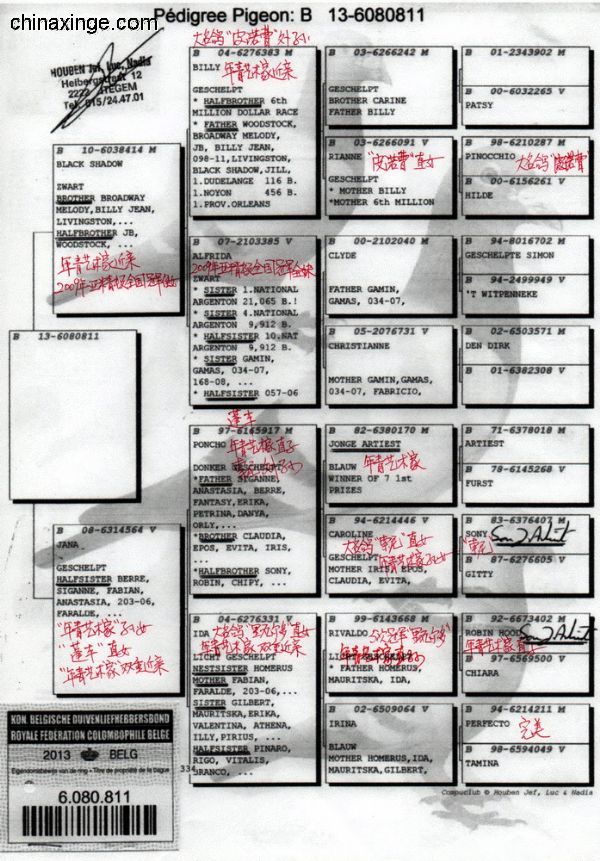 chinaxinge.com
Pédigree Pigeon: B 13-6080811
HOUBEN Jef, Luc, Nadia
Heibergstraat 12
2222 ITEGEM
Tel. 015/24.47.01
B 13-6080811
B 10-6038414 M
BLACK SHADOW
ZWART
BROTHER BROADWAY
MELODY,BILLY JEAN,
LIVINGSTON,...
HALFBROTHER JB,
WOODSTOCK, ...
年青艺术家近亲
B 08-6314564 V
JANA
GESCHELPT
HALFSISTER BERRE,
SIGANNE, FABIAN,
ANASTASIA, 203-06,
FARALDE, ...
"年青艺术家"孙女
"蓬车"直女
"年青艺术家"双重近亲
大名鸽"皮诺曹"外孙
B 04-6276383 M
BILLY
年青艺术家近亲
GESCHELPT
* HALFBROTHER 6th
MILLION DOLLAR RACE
* FATHER WOODSTOCK,
BROADWAY MELODY,
JB, BILLY JEAN,
098-11,LIVINGSTON,
BLACK SHADOW,JILL,
1.DUDELANGE 116 B.
1.NOYON 456 B.
1.PROV.ORLEANS
B 07-2103385 V
ALFRIDA
ZWART
* SISTER 1.NATIONAL
ARGENTON 21,065 B.!
* SISTER 4.NATIONAL
ARGENTON 9,912 B.
* HALFSISTER 10.NAT
ARGENTON 9,912 B.
* SISTER GAMIN,
GAMAS, 034-07,
168-08, ...
* HALFSISTER 057-06
蓬车
B 97-6165917 M
PONCHO
年青艺术家直子
DONKER GESCHELPT
*FATHER SIGANNE,
ANASTASIA, BERRE,
FANTASY,ERIKA,
PETRINA,DANYA,
ORLY,...
*BROTHER CLAUDIA,
EPOS, EVITA, IRIS,
...
*HALFBROTHER SONY,
ROBIN, CHIPY, ...
B 04-6276331 V
IDA
年青艺术家双重近亲
LICHT GESCHELPT
NESTSISTER HOMERUS
MOTHER FABIAN,
FARALDE, 203-06,...
SISTER GILBERT,
MAURITSKA,ERIKA,
VALENTINA, ATHENA,
ILLY,PIRIUS, ...
HALFSISTER PINARO,
RIGO, VITALIS,
BRANCO, ...
B 03-6266242 M
GESCHELPT
BROTHER CARINE
FATHER BILLY
B 03-6266091 V
RIANNE
"皮诺曹"直女
GESCHELPT
* MOTHER BILLY
*MOTHER 6th MILLION
B 00-2102040 M
CLYDE
FATHER GAMIN,
GAMAS, 034-07,
B 05-2076731 V
CHRISTIANNE
MOTHER GAMIN,GAMAS,
034-07, FABRICIO,
B 82-6380170 M
JONGE ARTIEST
BLAUW
年青艺术家
WINNER OF 7 1st
PRIZES
B 94-6214446 V
CAROLINE
GESCHELPT
MOTHER IRIS EPOS,
CLAUDIA, EVITA,
B 99-6143668 M
RIVALDO
LICHT GESCHELPT
* FATHER HOMERUS,
MAURITSKA, IDA,
B 02-6509064 V
IRINA
BLAUW
MOTHER HOMERUS,IDA,
MAURITSKA,GILBERT,
B 01-2343902 M
PATSY
B 00-6032265 V
B 98-6210287 M
PINOCCHIO
大名鸽"皮诺曹"
B 01-6156261 V
HILDE
B 94-8016702 M
GESCHELPTE SIMON
B 94-2499949 V
'T WITPENNEKE
B 02-6503571 M
DEN DIRK
B 01-6382308 V
B 71-6378018 M
ARTIEST
B 78-6145268 V
FURST
B 83-6376407 M
SONY
B 87-6276605 V
GITTY
B 92-6673402 M
ROBIN HOOD
年青艺术家直子
B 97-6569500 V
CHIARA
B 94-6214211 M
PERFECTO
完美
B 98-6594049 V
TAMINA
334
Compuclub © Houben Jef, Luc & Nadia
KON. BELGISCHE DUIVENLIEFHEBBERSBOND
ROYALE FEDERATION COLOMBOPHILE BELGE
2013 BELG
Eigendomsbewijs van de ring - Titre de propriété de la bague
6.080.811